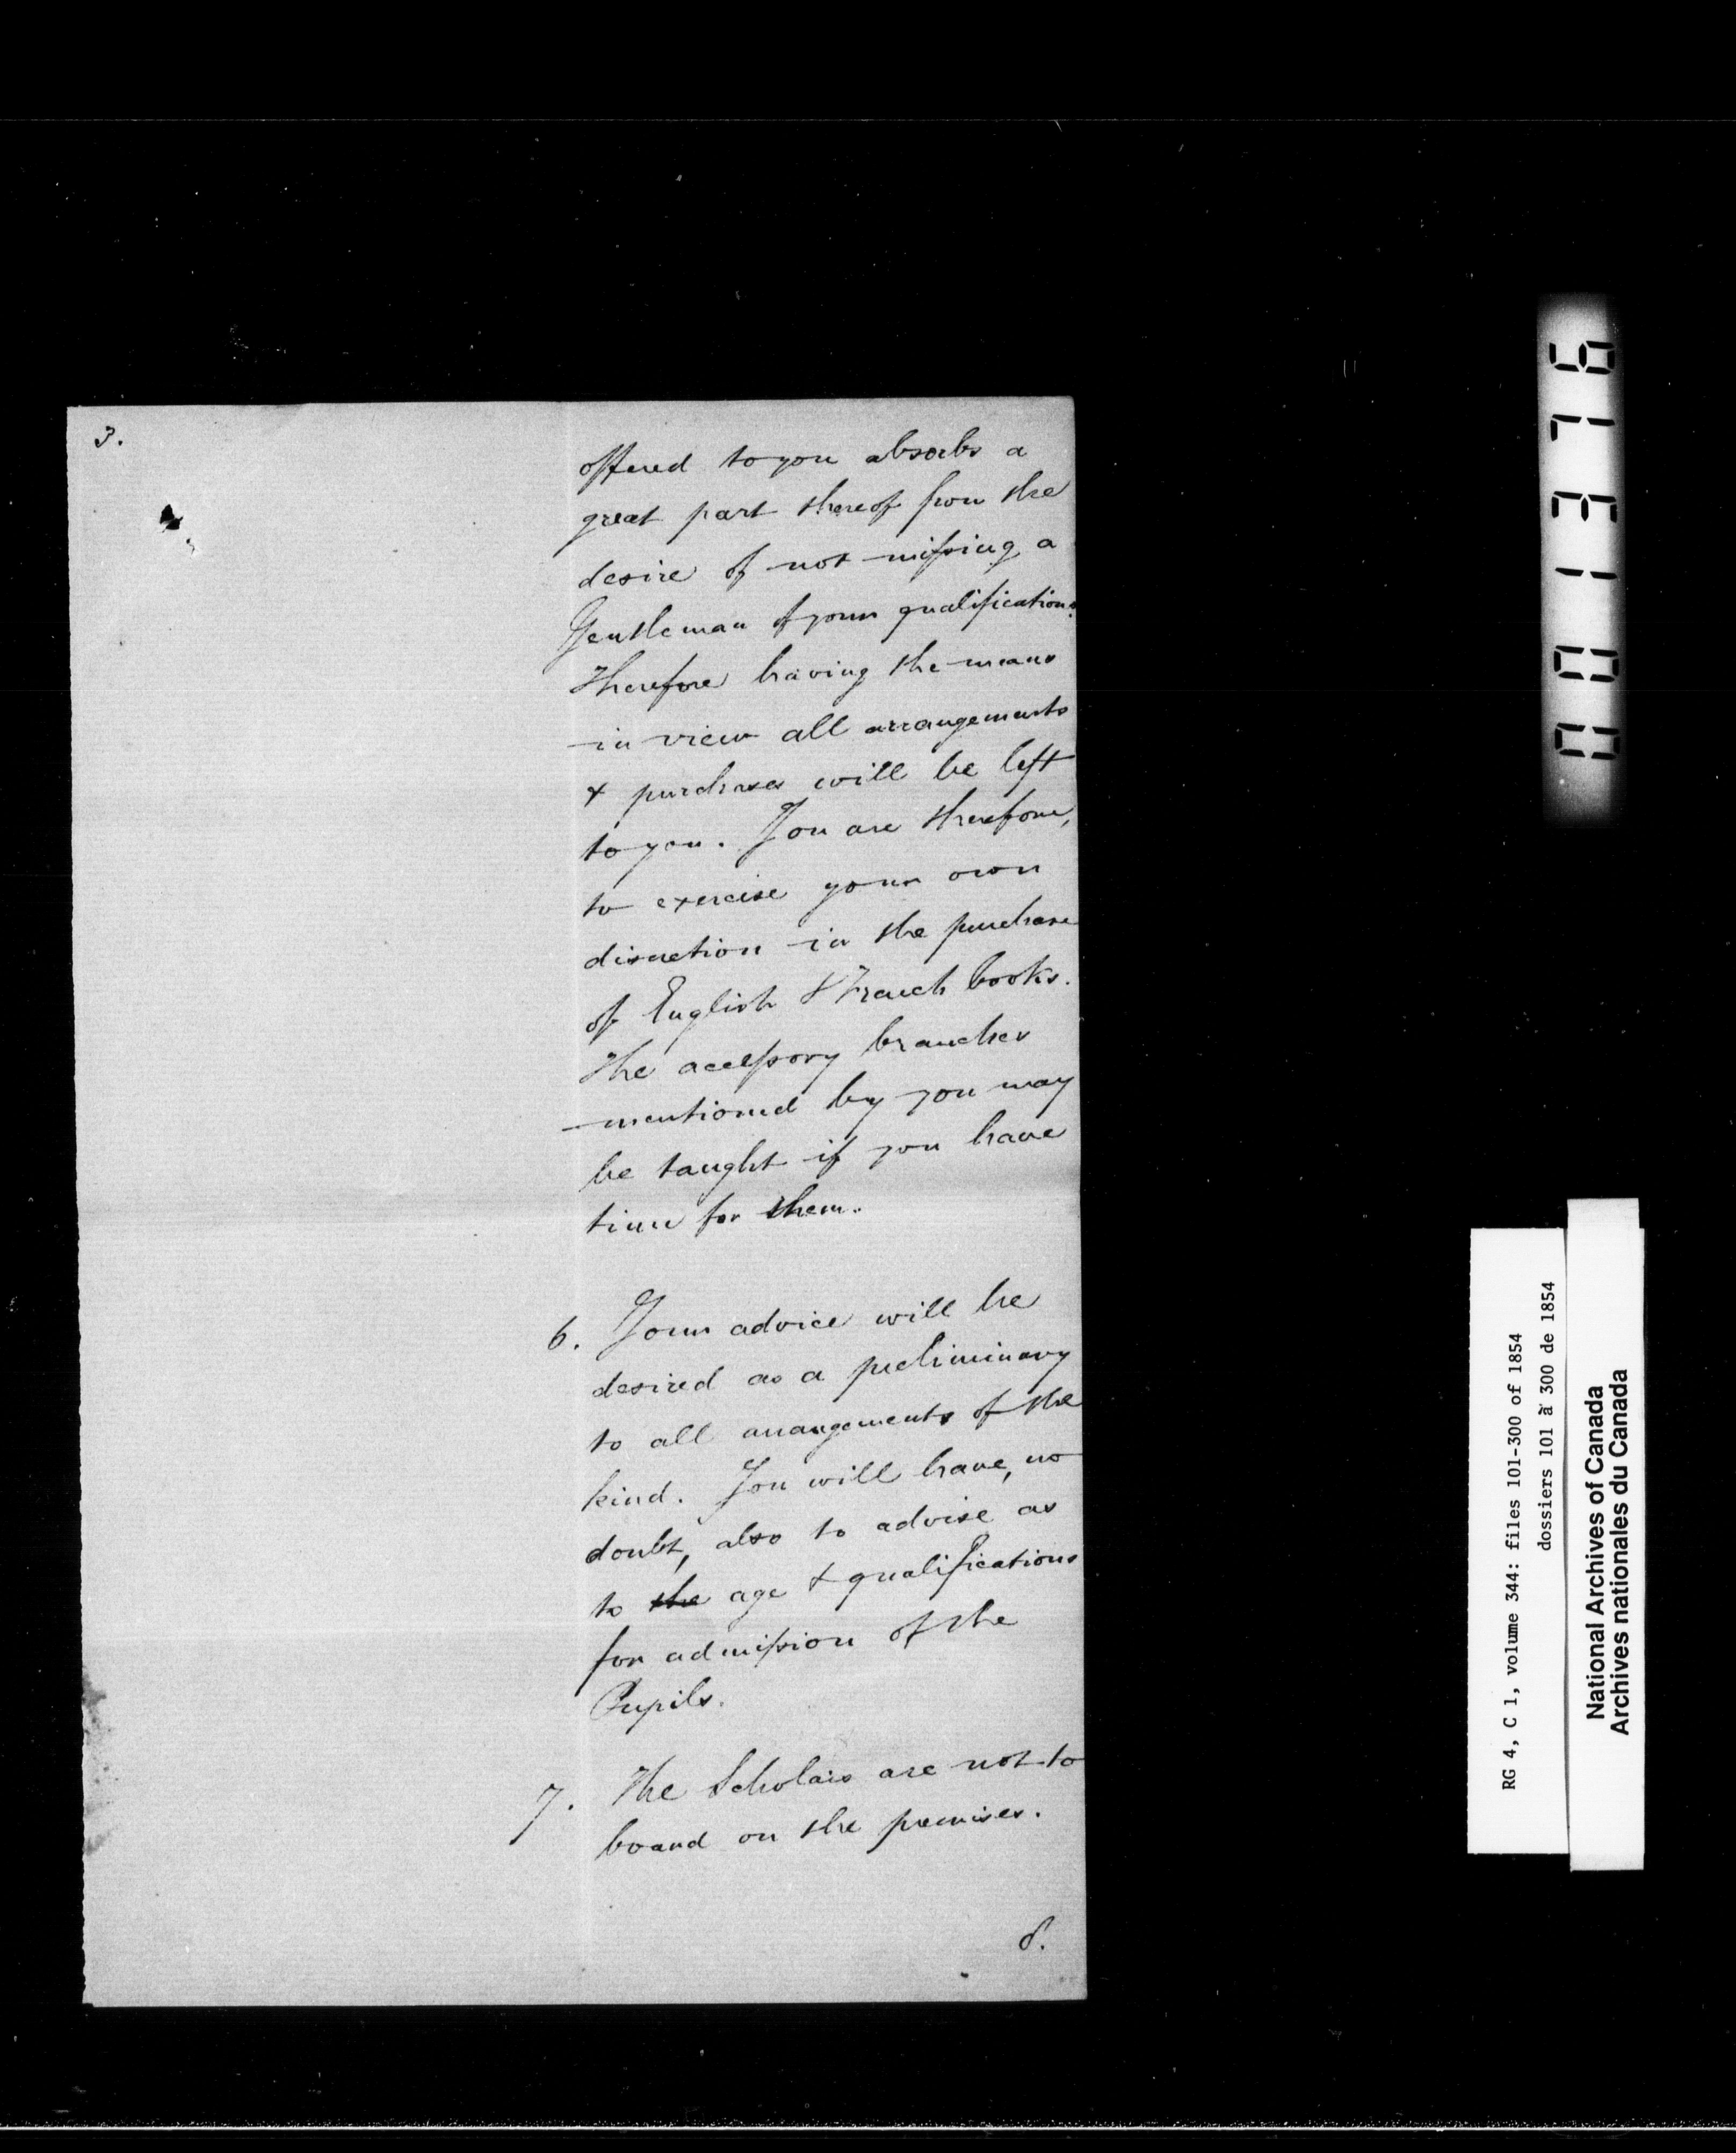 3.
offered to you absorbs a
great part thereof from the
desire of not missing a
Gentleman of your qualifications.
Therefore having the means
in view all arrangements
& purchases will be left
to you. You are therefore,
to exercise your own
discretion in the purchase
of English & French books.
The accessory branches
mentioned by you may
be taught if you have
time for them.
6. Your advice will be
desired as a preliminary
to all arrangements of the
kind. You will have, no
doubt, also to advise as
to the age & qualifications
for admission of the
Pupils.
7. The Scholars are not to
board on the premises.
8.
001376
RG 4, C 1, volume 344: files 101-300 of 1854
dossiers 101 à 300 de 1854
National Archives of Canada
Archives nationales du Canada